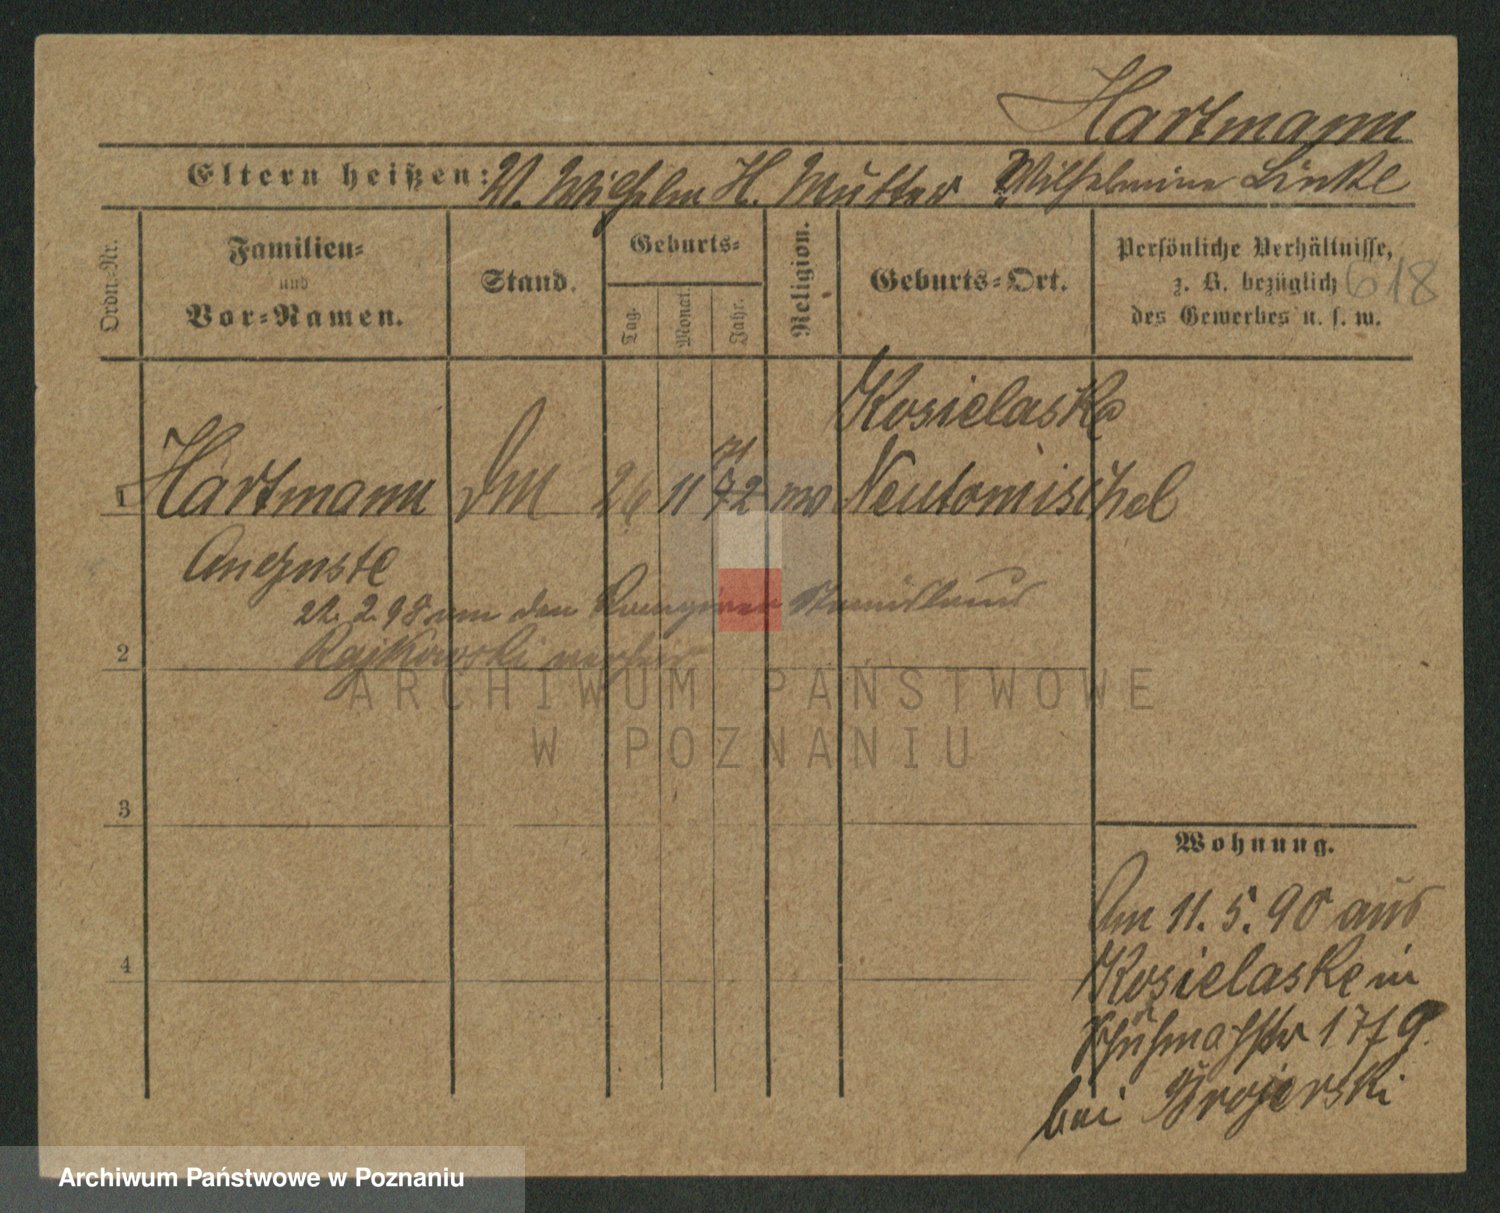 Hartmann
Eltern heißen: V. Wilhelm H. Mutter Wilhelmine Linke
Ordn.-Nr.
Familien-
und
Vor-Namen.
Stand.
Geburts-
Tag.
Monat.
Jahr.
Religion.
Geburts-Ort.
Persönliche Verhältnisse,
z. B. bezüglich
des Gewerbes u. s. w.
618
Kosielaske
71
1 Hartmann DM 26 11 72 Neutomischel
Auguste
22. 2. 98 an den Rangirer Stanislaus
2 Rajkowski verheir
ARCHIWUM PAŃSTWOWE
W POZNANIU
3
Wohnung.
Am 11. 5. 90 aus
4 Kosielaske in
Schuhmachstr 17
bei
Archiwum Państwowe w Poznaniu